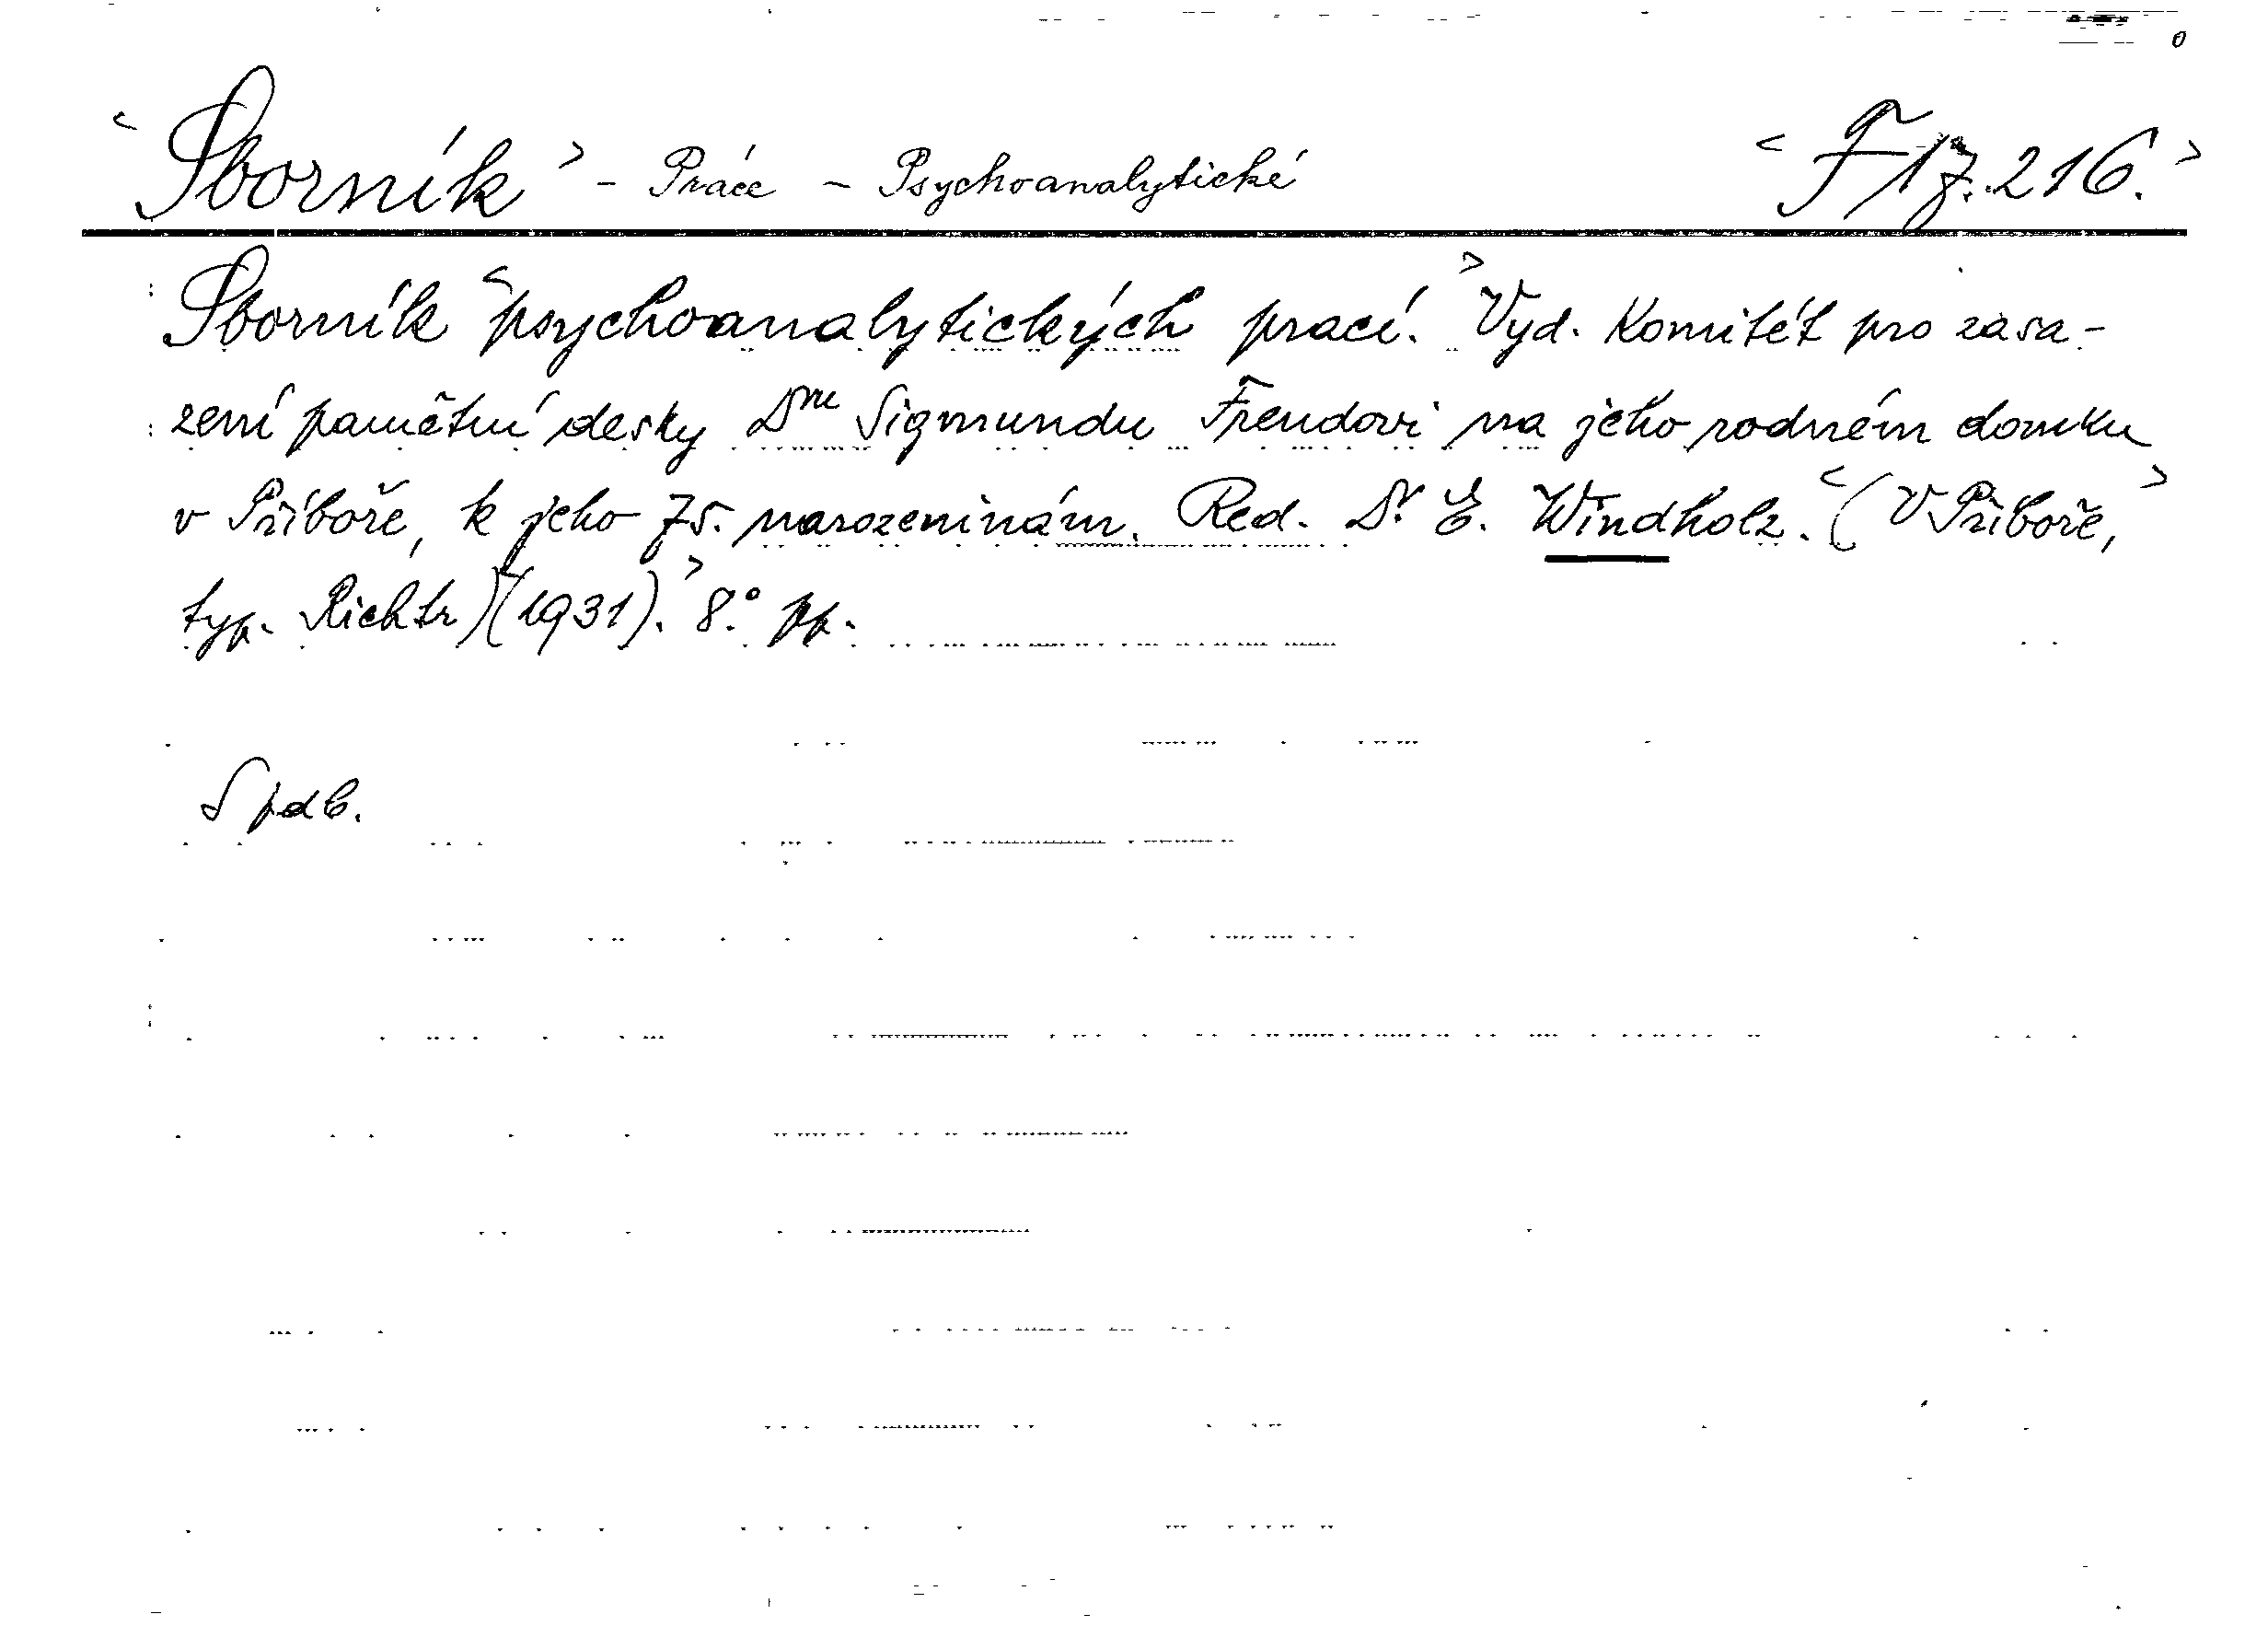 < Sborník > - Práce - Psychoanalytické < F 17.216. >
Sborník < psychoanalytických prací. > Vyd. Komitét pro zasa-
zení pamětní desky Dru Sigmundu Freudovi na jeho rodném domku
v Příboře, k jeho 75. narozeninám. Red. Dr. E. Windholz. < (V Příboře, >
typ. Richtr) (1931). > 8.° pp.